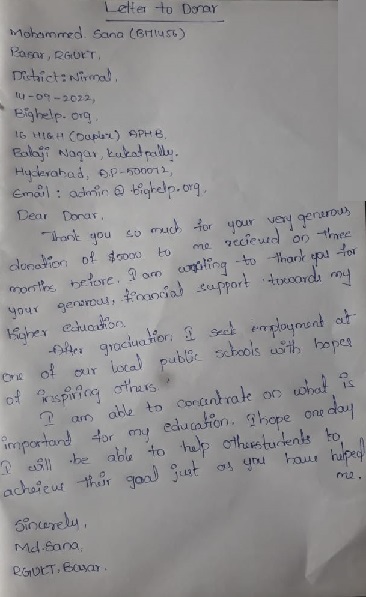 Letter to Donar
Mohammed. Sana (BH1456)
Basar, RGUKT,
District: Nirmal,
14-09-2022,
Bighelp. org,
16 MIGH (Duplex) APHB,
Balaji Nagar, kukatpally.
Hyderabad, A.P-500072,
Email: admin @ bighelp.org.
Dear Donar,
Thank you so much for your very generous
donation of $5000 to me recieved on three
months before. I am writing to thank you for
your generous, financial support towards my
higher education.
After graduation, I seek employment at
one of our local public schools with hopes
of inspiring others
I am able to concantrate on what is
important for my education. I hope one day
I will be able to help otherstudents to
acheieve their goal just as you have helped
me.
Sincerely,
Md. Sana,
RGUKT, Basar.